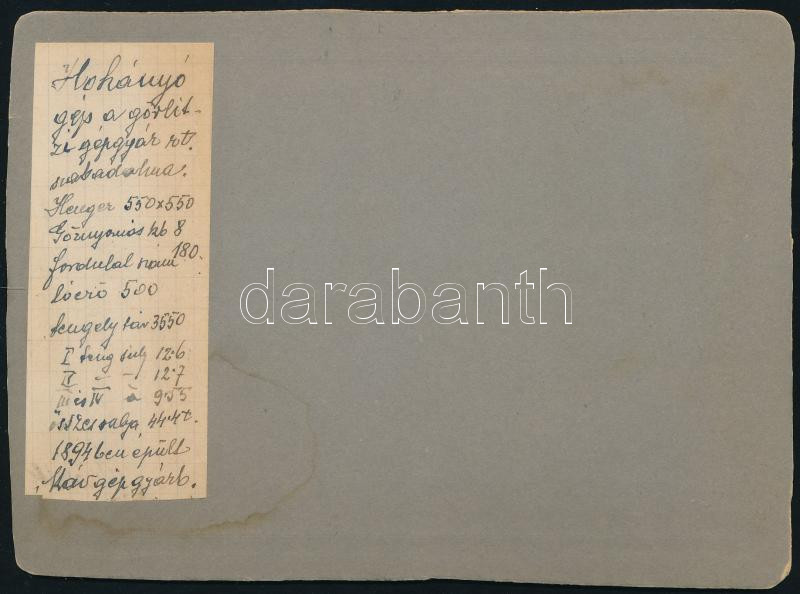 Hohányó
gép a görlit-
zi gépgyár rt.
szabadalma.
Henger 550x550
Gőznyomás kb 8
fordulat szám 180.
lóerő 500
tengely táv 3550
I teng suly 12.6
II " - " 12.7
III és IV à 9.55
összes sulya 44.4t.
1894ben épült
Máv gépgyárb.
darabanth